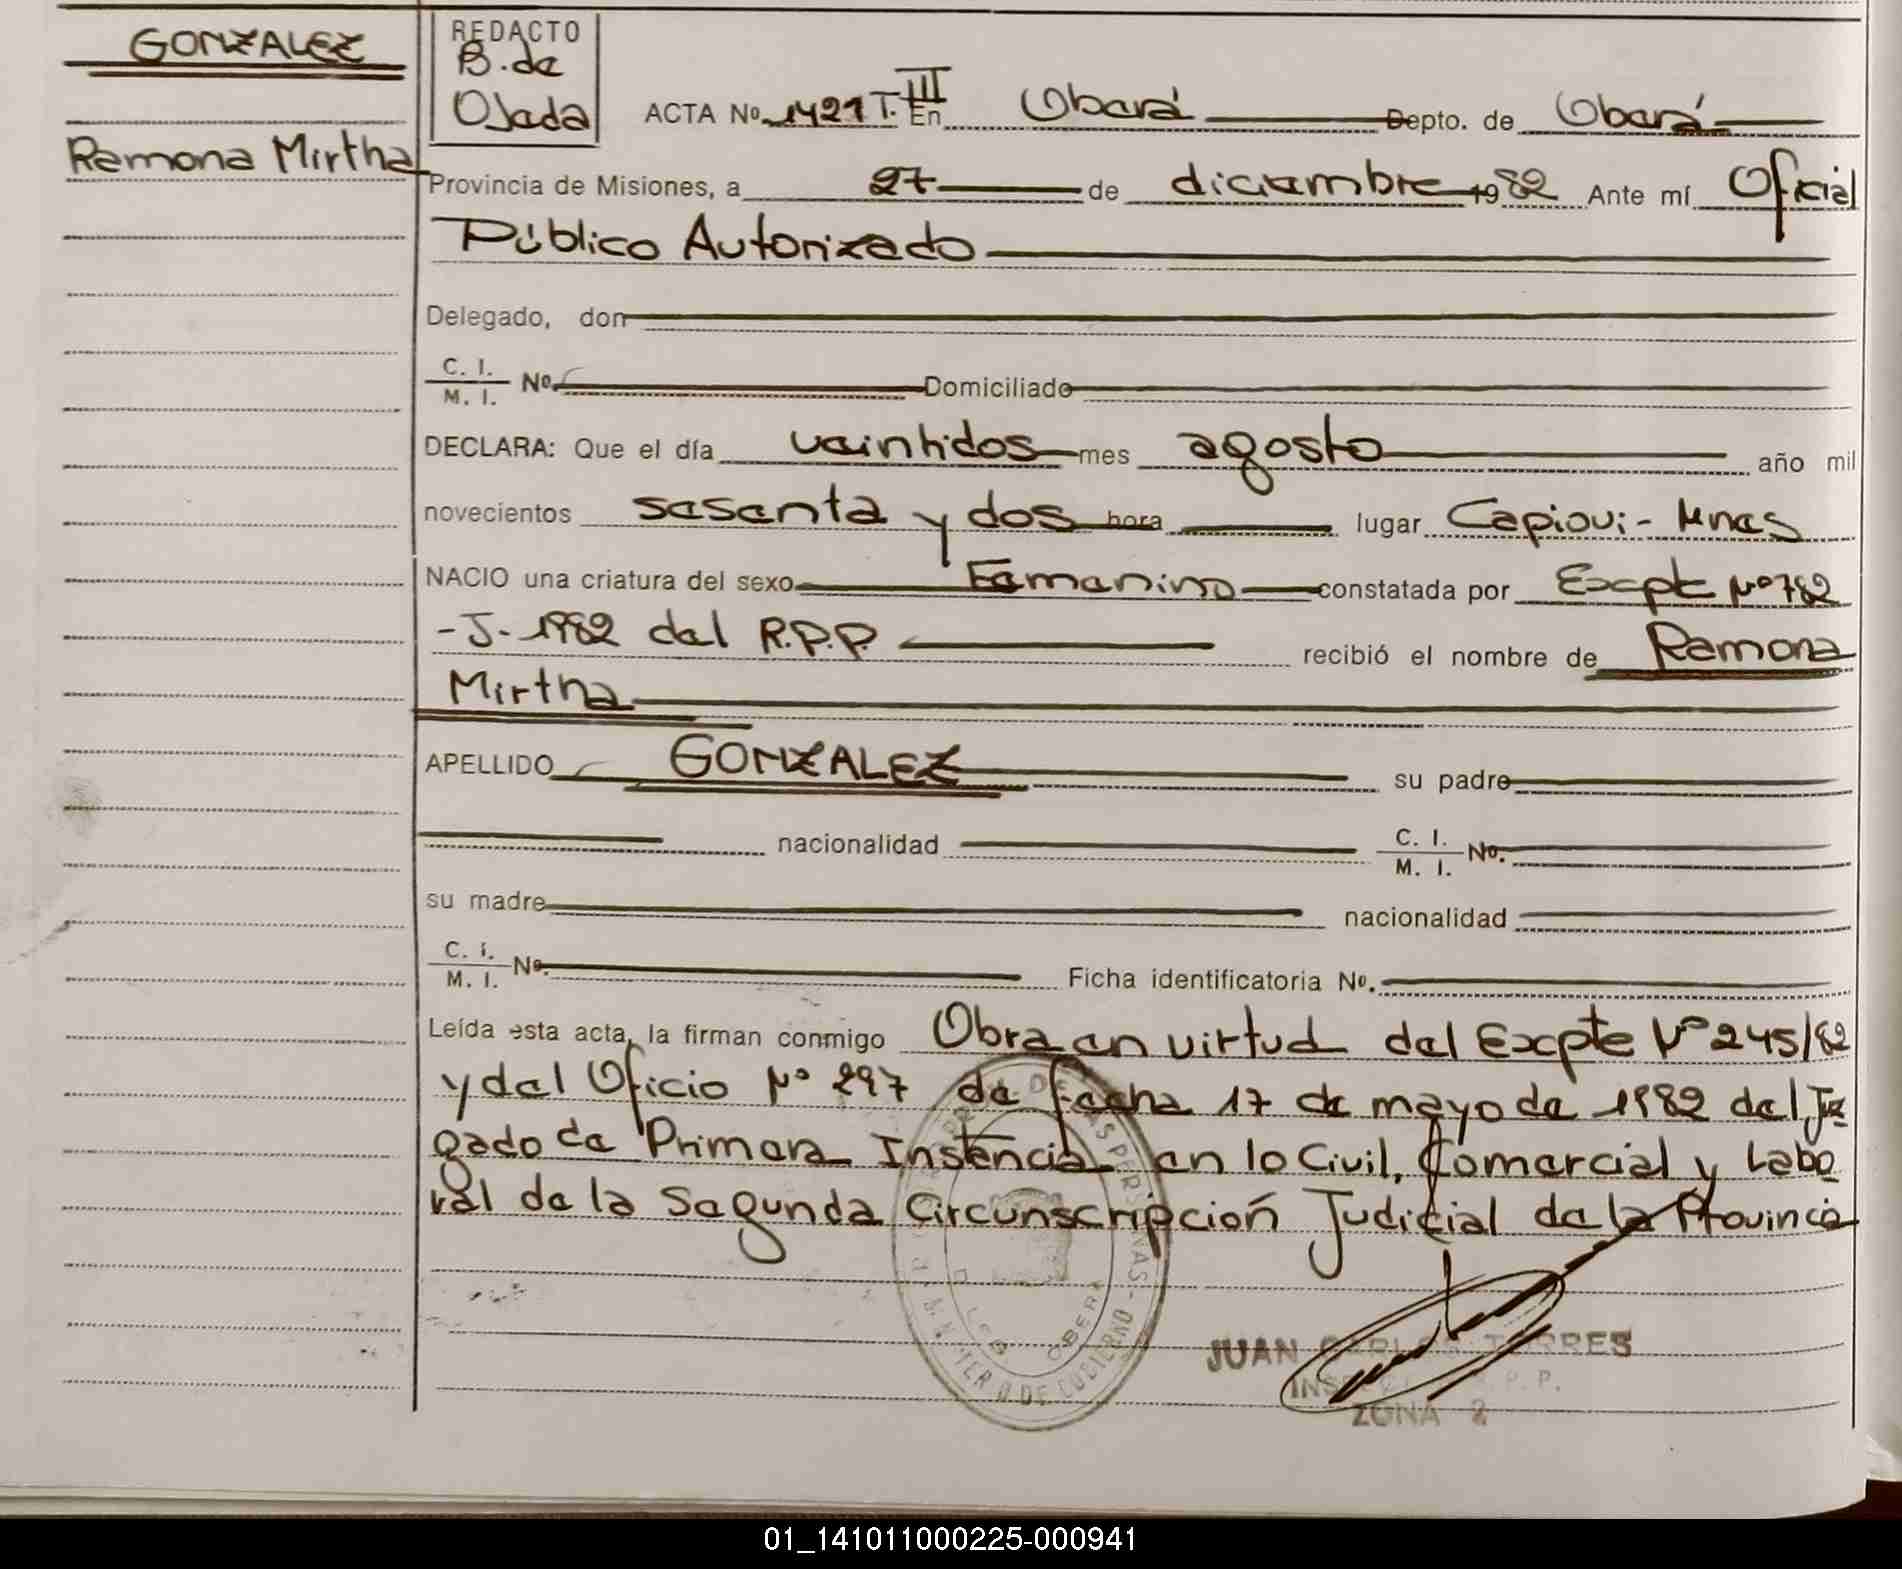 GONZALEZ
Ramona Mirtha
REDACTO
B. de
Ojeda
ACTA No. 1421 T. III En Oberá Depto. de Oberá
Provincia de Misiones, a 27 de diciembre 1982 Ante mí Oficial
Público Autorizado
Delegado, don
C. I. / M. I. No. Domiciliado
DECLARA: Que el día veintidos mes agosto año mil
novecientos sesenta y dos hora lugar Capiovi - Mnes
NACIO una criatura del sexo Femenino constatada por Expte Nº 782
- J - 1982 del R.P.P. recibió el nombre de Ramona
Mirtha
APELLIDO GONZALEZ su padre
nacionalidad C. I. / M. I. No.
su madre nacionalidad
C. I. / M. I. No. Ficha identificatoria No.
Leída esta acta, la firman conmigo Obra en virtud del Expte Nº 245/82
y del Oficio Nº 297 de fecha 17 de mayo de 1982 del Juz
gado de Primera Instancia en lo Civil, Comercial y Labo
ral de la Segunda Circunscripción Judicial de la Provincia
DE LAS PERSONAS -
MINISTERIO DE GOBIERNO
OBERA
JUAN CARLOS TORRES
R. P. P.
ZONA 2
01_141011000225-000941